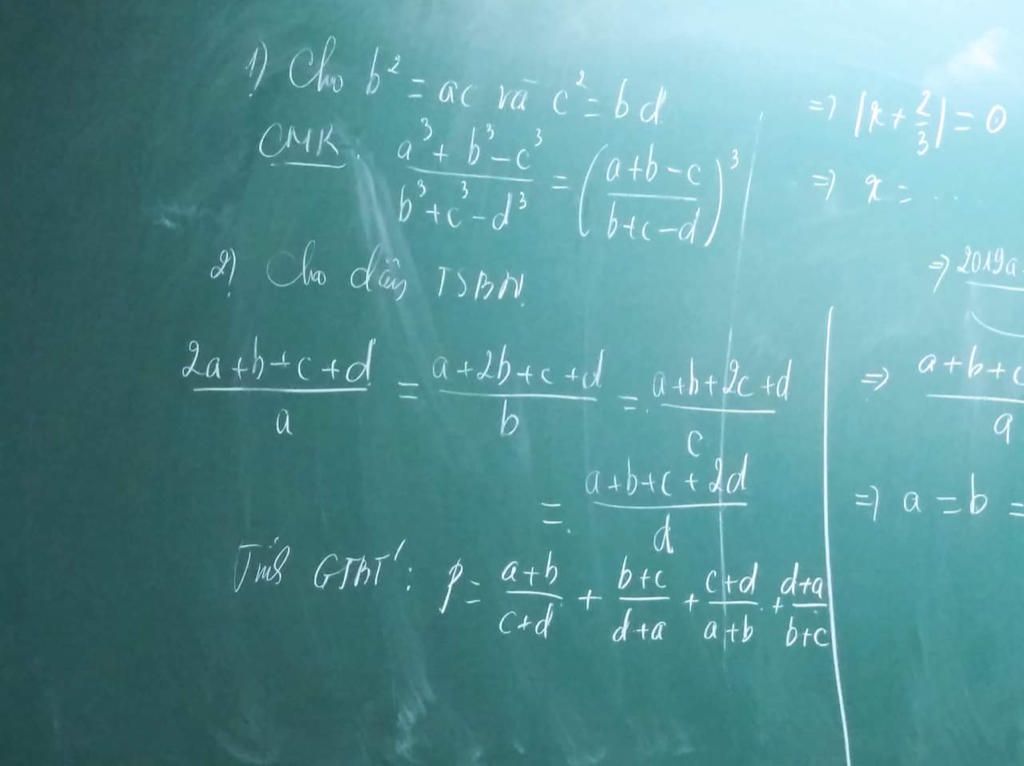 1) Cho b² = ac và c² = bd
CMR: (a³ + b³ - c³)/(b³ + c³ - d³) = ((a+b-c)/(b+c-d))³
2) Cho dãy TSBN
(2a+b+c+d)/a = (a+2b+c+d)/b = (a+b+2c+d)/c
= (a+b+c+2d)/d
Tính GTBT: P = (a+b)/(c+d) + (b+c)/(d+a) + (c+d)/(a+b) + (d+a)/(b+c)
=> |x + 2/3| = 0
=> x = ...
=> 2019a
=> (a+b+c)/a
=> a = b =